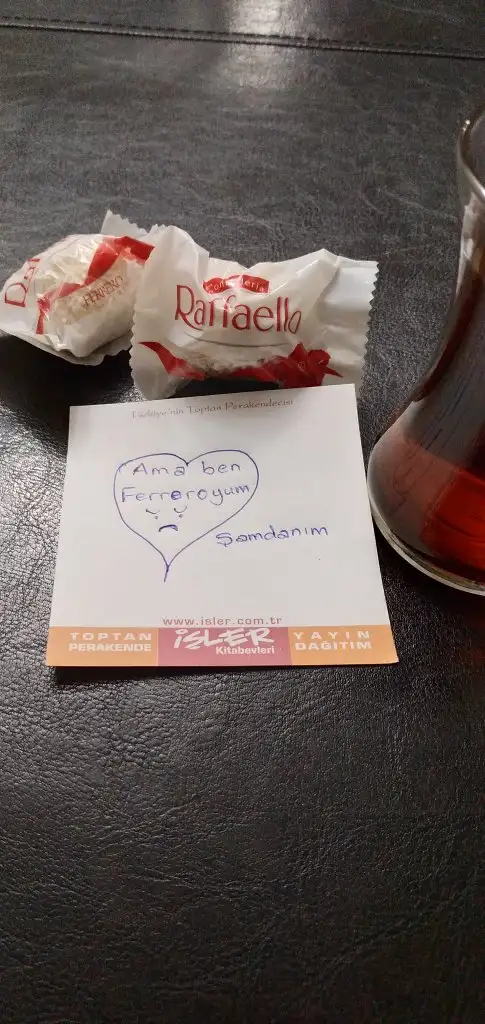 FERRERO
Confetteria
Raffaello
Türkiye'nin Toptan Perakendecisi
Ama ben
Ferreroyum
Şamdanım
www.isler.com.tr
TOPTAN
PERAKENDE
İŞLER
Kitabevleri
YAYIN
DAĞITIM